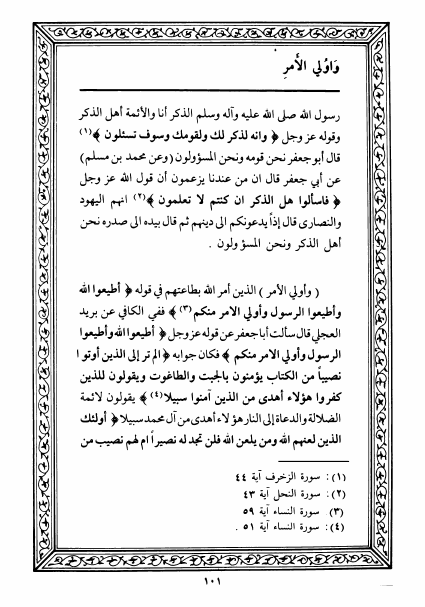 وَاوُلي الأَمرِ
رسول الله صلى الله عليه وآله وسلم الذكر أنا والأئمة أهل الذكر
وقوله عز وجل ﴿ وانه لذكر لك ولقومك وسوف تسئلون ﴾(١)
قال أبو جعفر نحن قومه ونحن المسؤولون (وعن محمد بن مسلم)
عن أبي جعفر قال ان من عندنا يزعمون أن قول الله عز وجل
﴿ فاسألوا هل الذكر ان كنتم لا تعلمون ﴾(٢) انهم اليهود
والنصارى قال إذاً يدعونكم الى دينهم ثم قال بيده الى صدره نحن
أهل الذكر ونحن المسؤولون .
( وأولي الأمر ) الذين أمر الله بطاعتهم في قوله ﴿ أطيعوا الله
وأطيعوا الرسول وأولي الامر منكم (٣)﴾ ففي الكافي عن بريد
العجلي قال سألت أبا جعفر عن قوله عز وجل ﴿ أطيعوا الله وأطيعوا
الرسول وأولي الامر منكم ﴾ فكان جوابه ﴿ الم تر إلى الذين أوتوا
نصيباً من الكتاب يؤمنون بالجبت والطاغوت ويقولون للذين
كفروا هؤلاء أهدى من الذين آمنوا سبيلا(٤) ﴾ يقولون لائمة
الضلالة والدعاة إلى النار هؤلاء أهدى من آل محمد سبيلا ﴿ أولئك
الذين لعنهم الله ومن يلعن الله فلن تجد له نصيراً ام لهم نصيب من
(١) : سورة الزخرف آية ٤٤
(٢) : سورة النحل آية ٤٣
(٣) سورة النساء آية ٥٩
(٤) : سورة النساء آية ٥١ .
١٠١